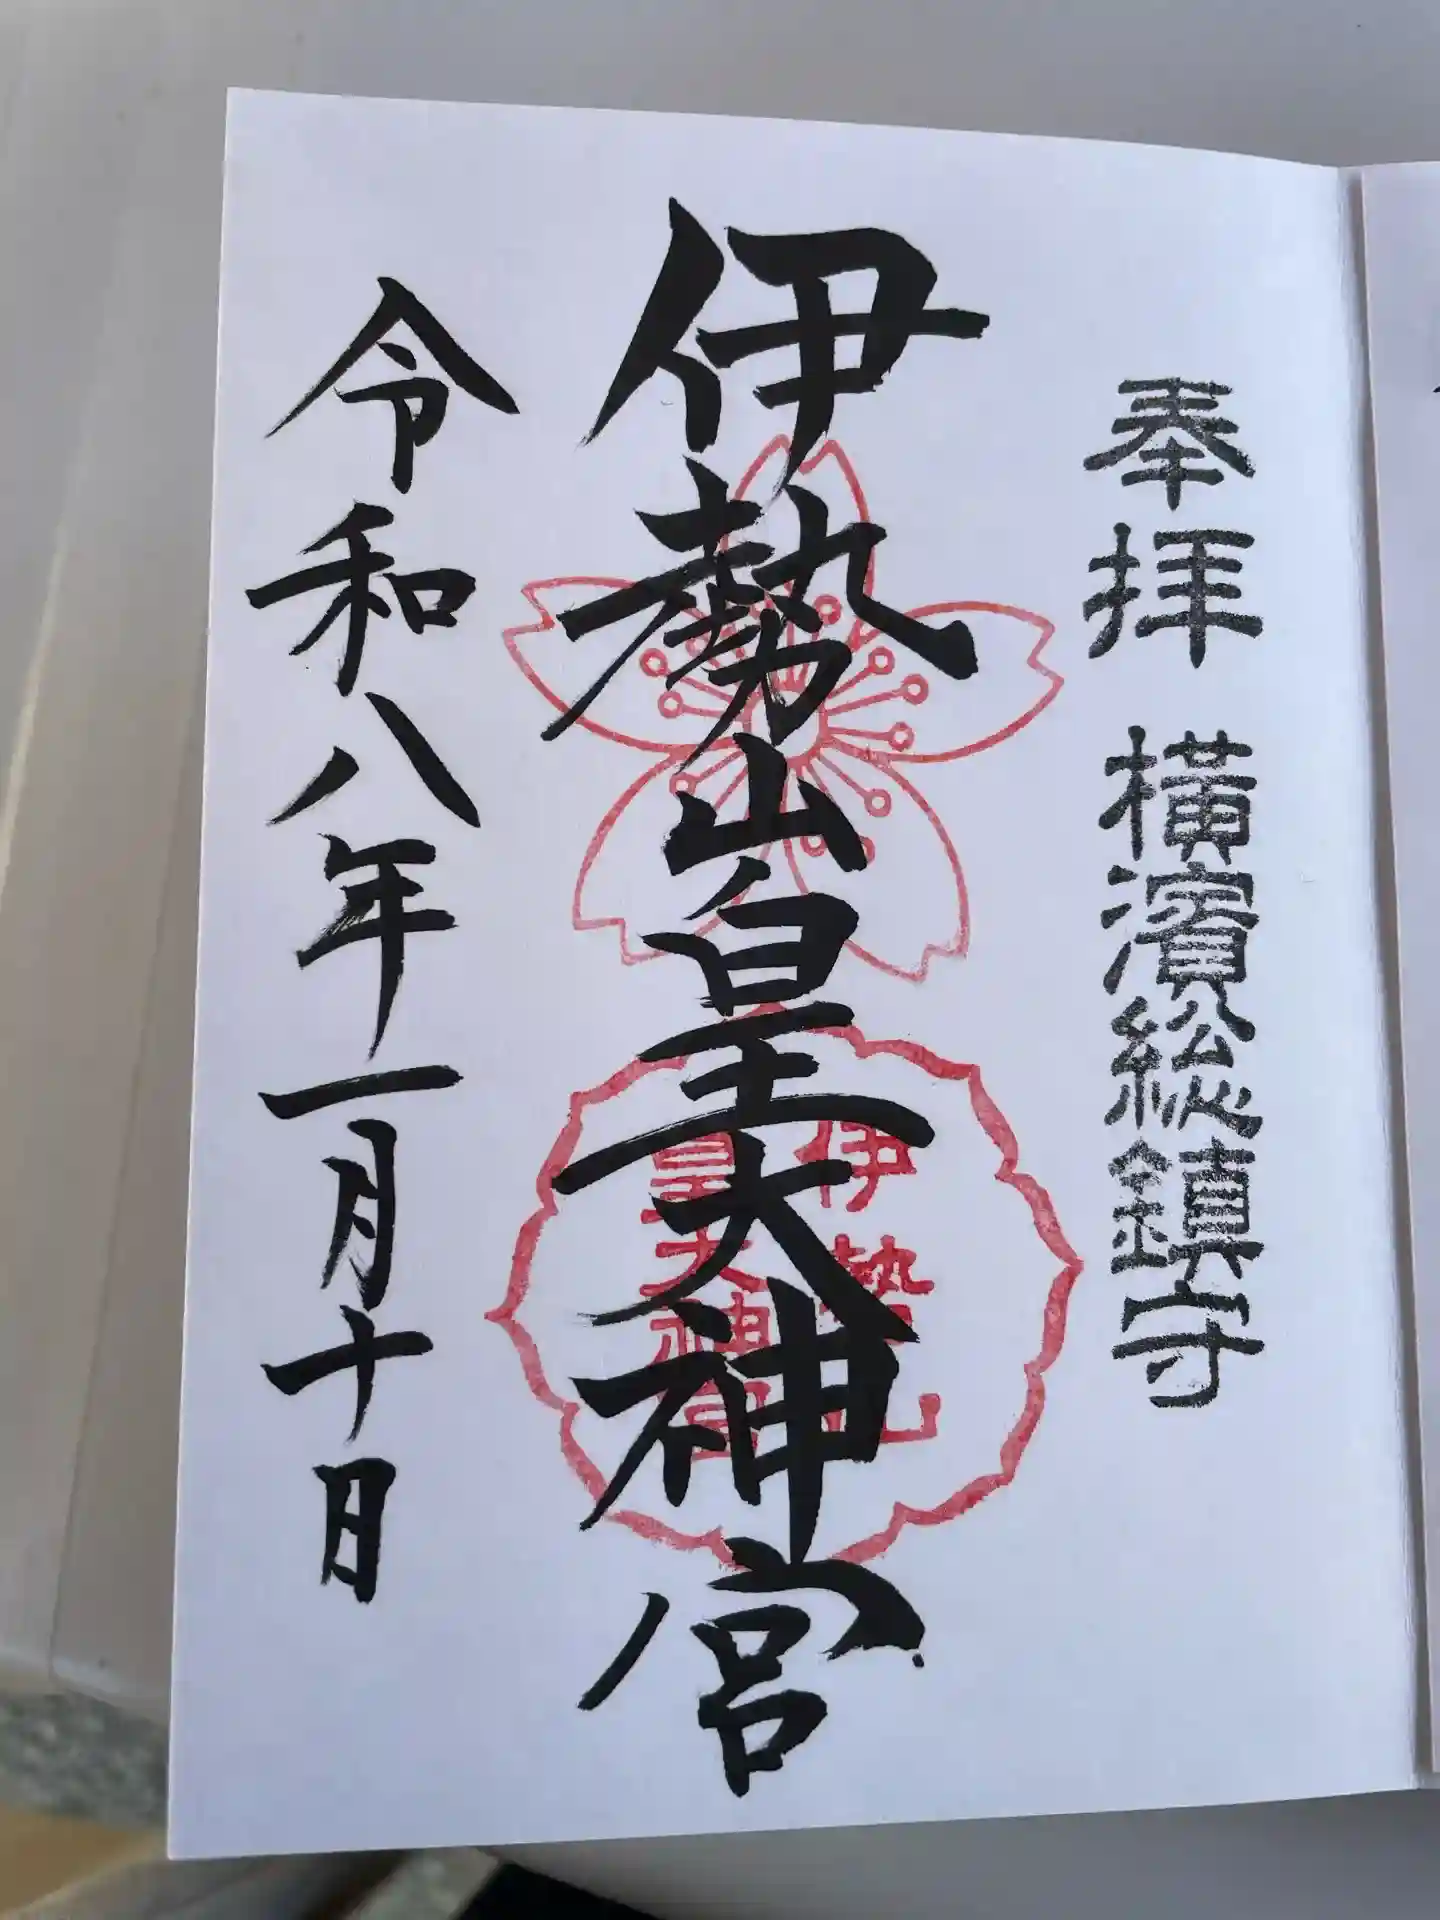 奉拝 横濱総鎮守
伊勢山皇大神宮
伊勢山
皇大神宮
令和八年一月十日